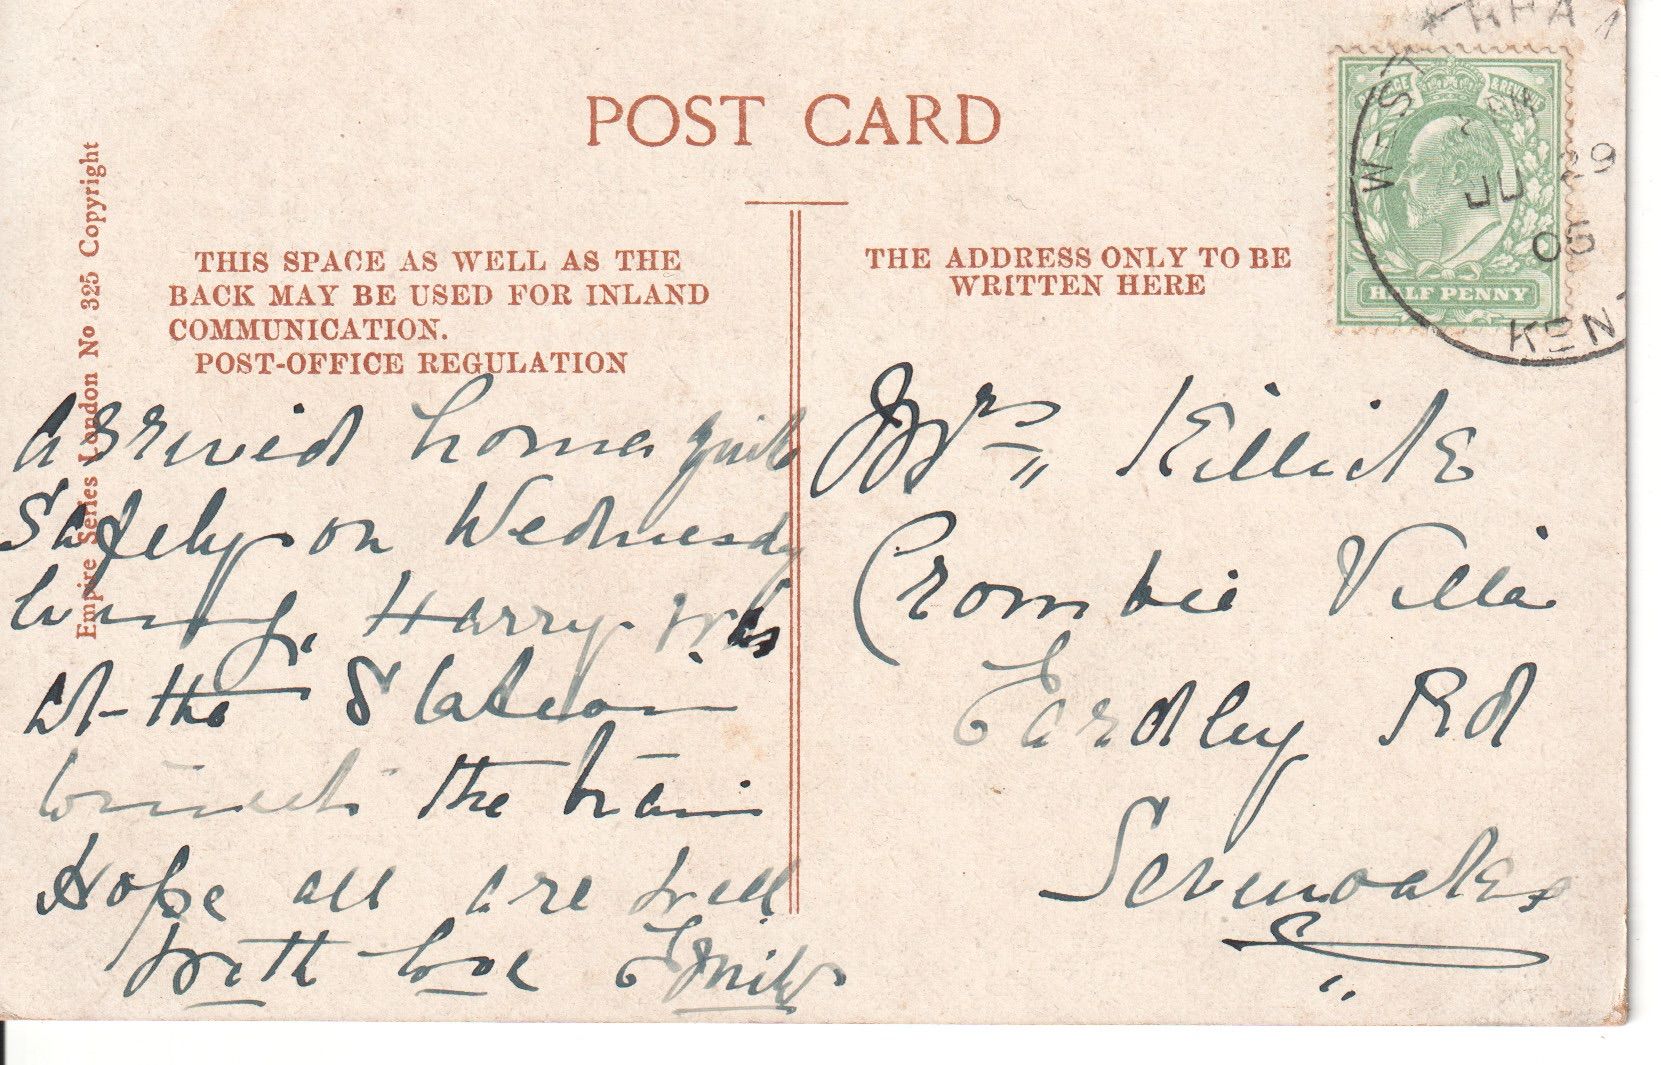 POST CARD
Empire Series London No 325 Copyright
THIS SPACE AS WELL AS THE
BACK MAY BE USED FOR INLAND
COMMUNICATION.
POST-OFFICE REGULATION
Arrived home quite
Safely on Wednesday
Harry was
at the Station
the train
Hope all are well
with love Emily
THE ADDRESS ONLY TO BE
WRITTEN HERE
Mrs Killick
Crombie Villa
Eardley Rd
Sevenoaks
POSTAGE & REVENUE
HALF PENNY
WEST
JU 29
05
KENT